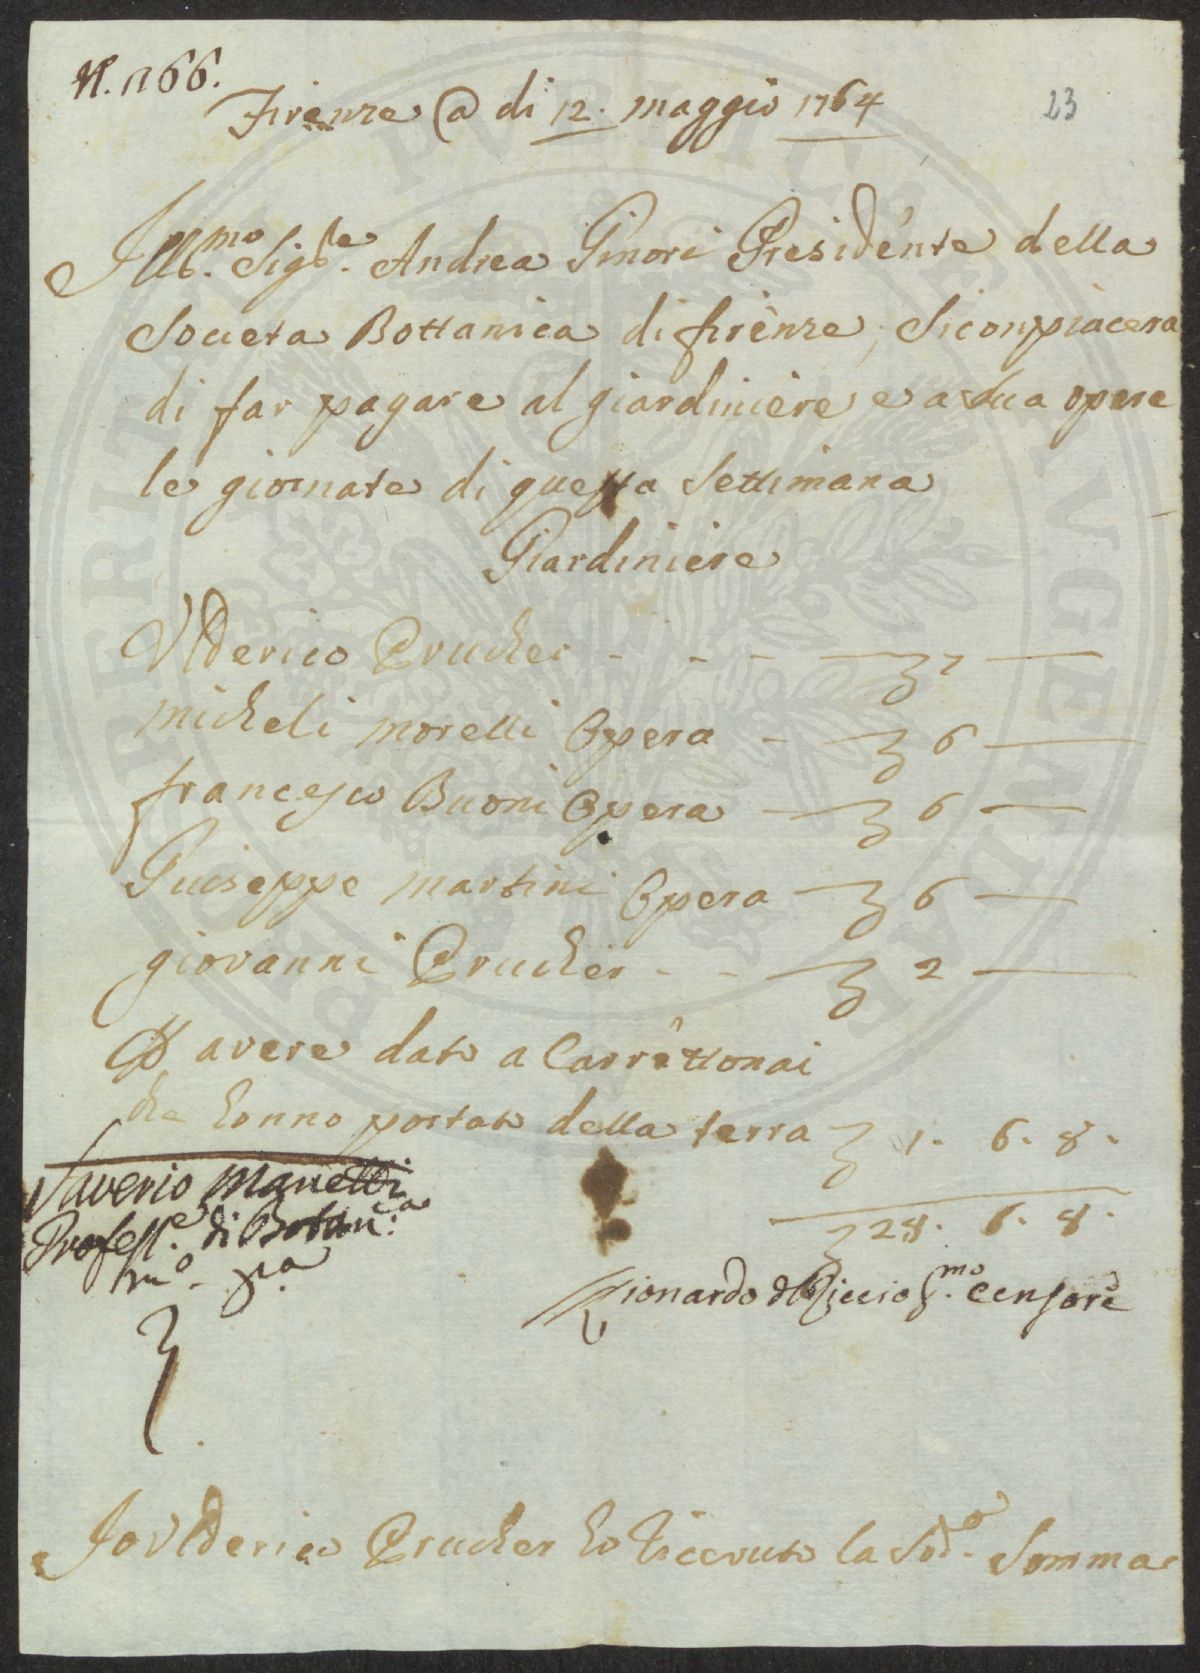 N. 1166.
Firenze @ di 12. maggio 1764
23
Ill.mo Sig.re Andrea Ginori Presidente della
Societa Bottanica di firenze, Siconpiacera
di far pagare al giardiniere e a dua opere
le giornate di questa Settimana
Giardiniere
Vlderico Prucher - - - 7
micheli morelli Opera - 6
francesco Buoni Opera - 6
Guiseppe martini Opera - 6
giovanni Prucher - - 2
P avere dato a Carrettonai
che hanno portato della terra 1. 6. 8.
28. 6. 8.
Saverio Manetti
Profess.e di Botan.ca
m.o p.a
Lionardo del Riccio S.mo Censore
Io Vlderico Prucher ho Riceuto la Sod.a Somma
PROSPERITATE PVBLICAE AVGENDAE